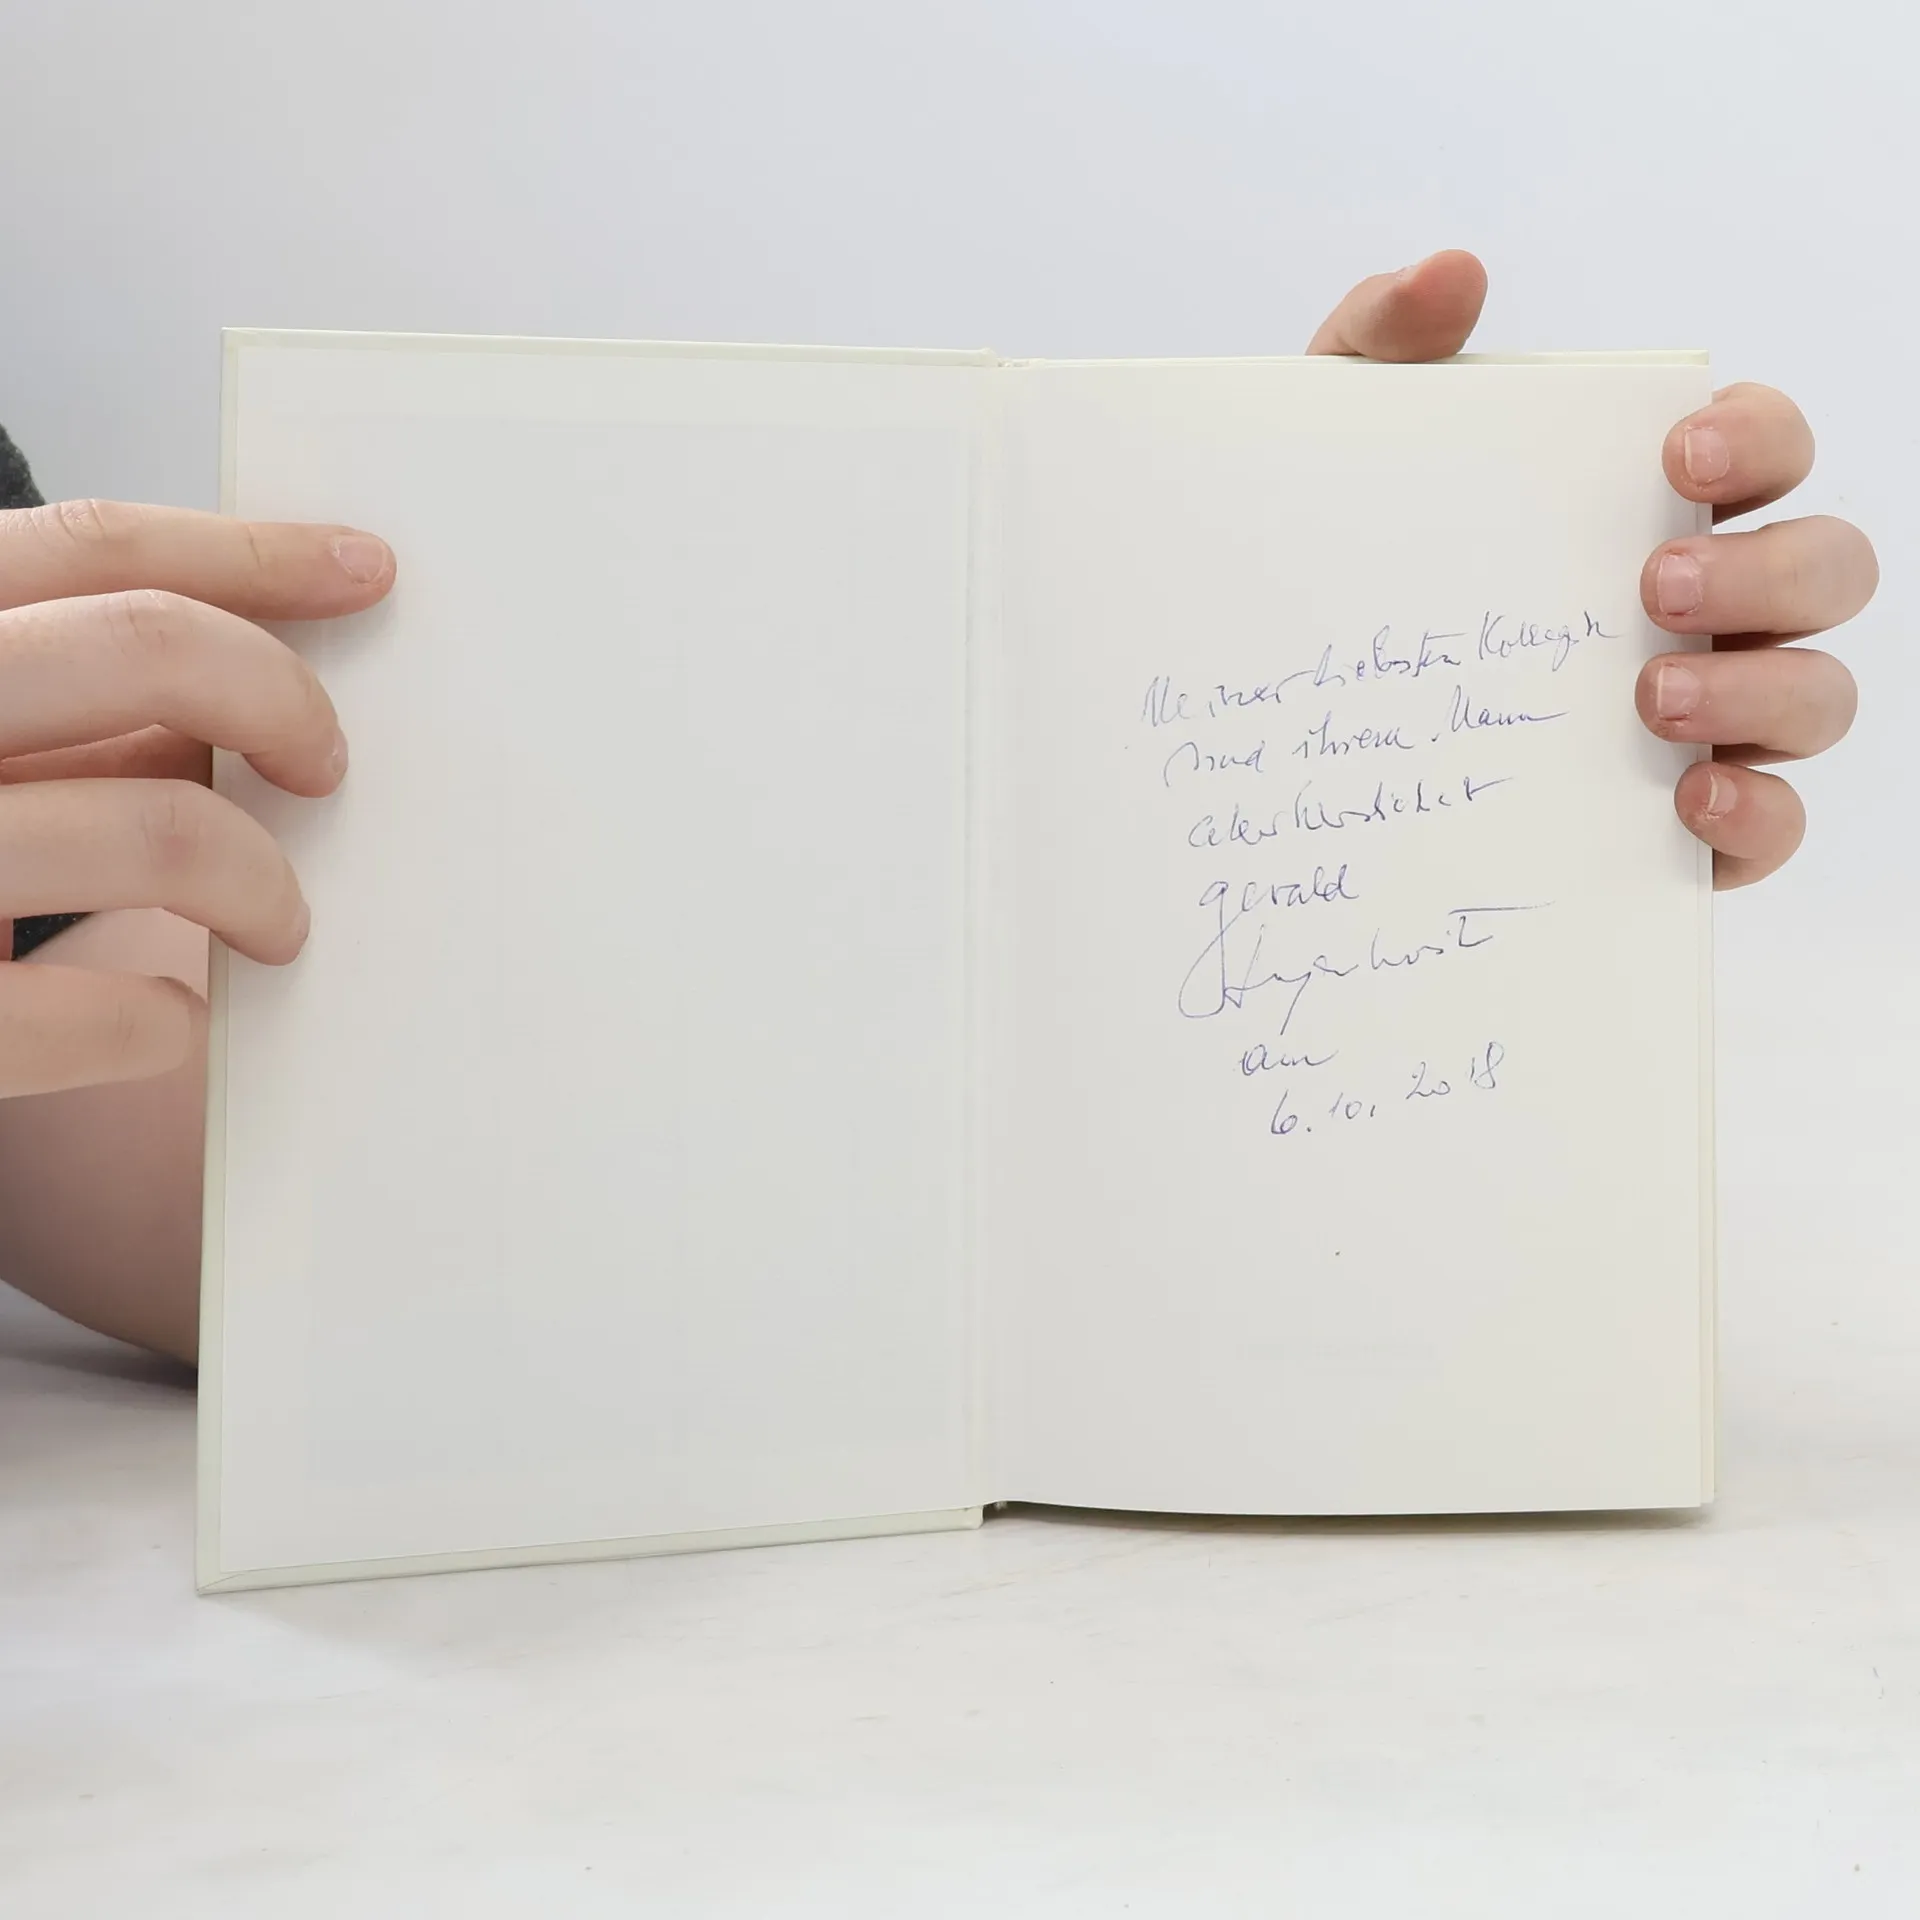 Meiner liebsten Kollegin
und ihrem Mann
allerherzlichst
gerald
am
6.10.2018